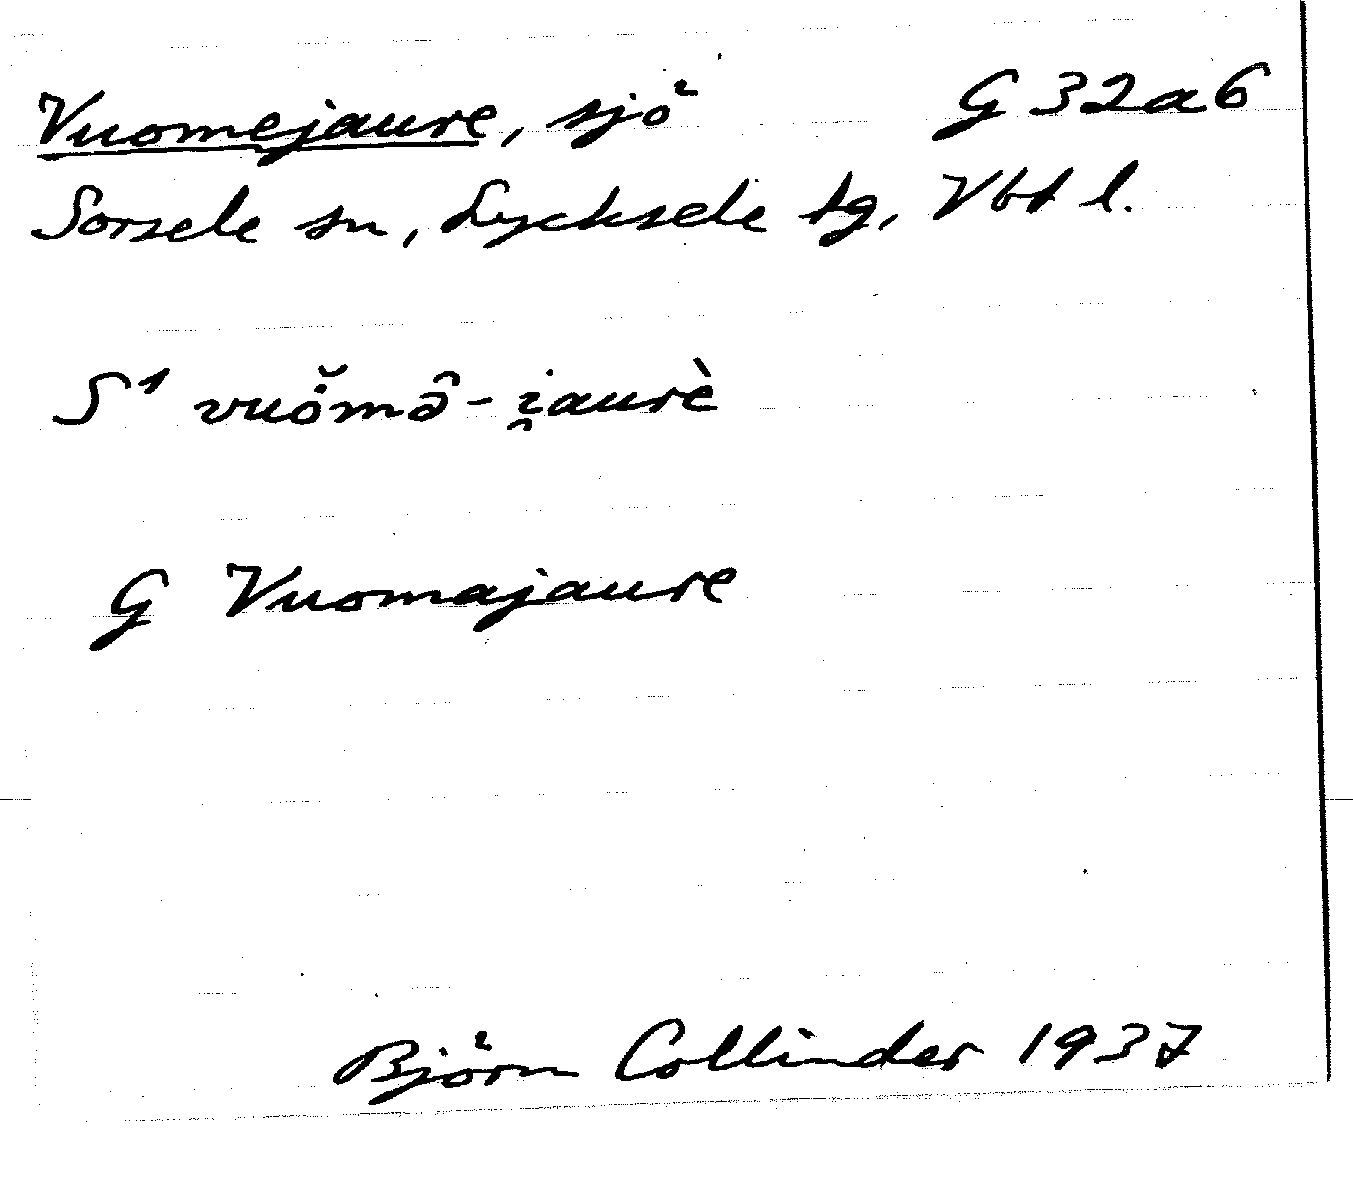 Vuomejaure, sjö G 32a6
Sorsele sn, Lycksele tg, Vbt l.
S¹ vuo᷅̇mə̑ - i̯aurè
G Vuomajaure
Björn Collinder 1937